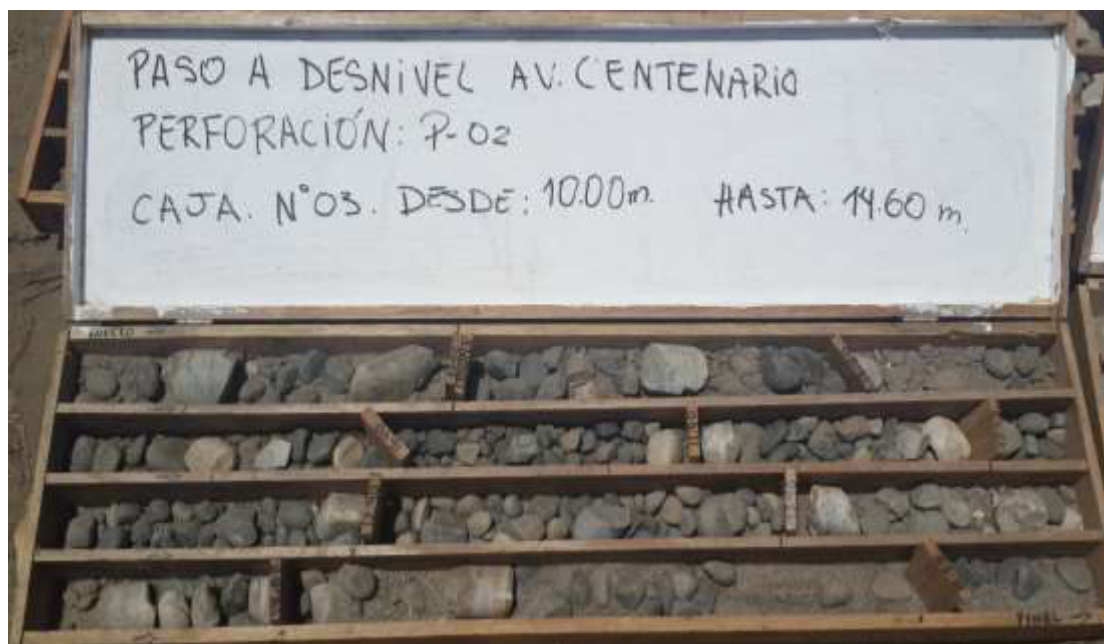 PASO A DESNIVEL AV. CENTENARIO
PERFORACIÓN: P-02
CAJA. N°03. DESDE: 10.00m. HASTA: 14.60 m.